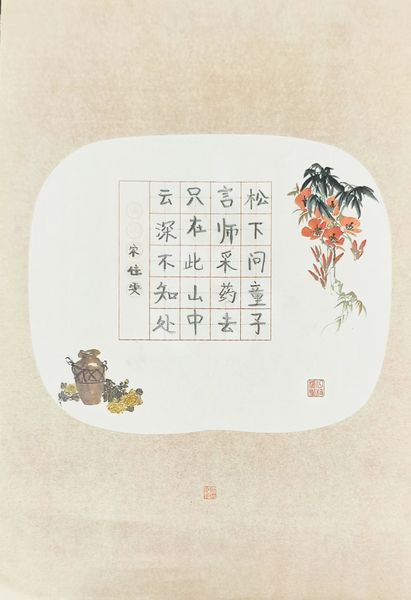 松下问童子
言师采药去
只在此山中
云深不知处
宋佳